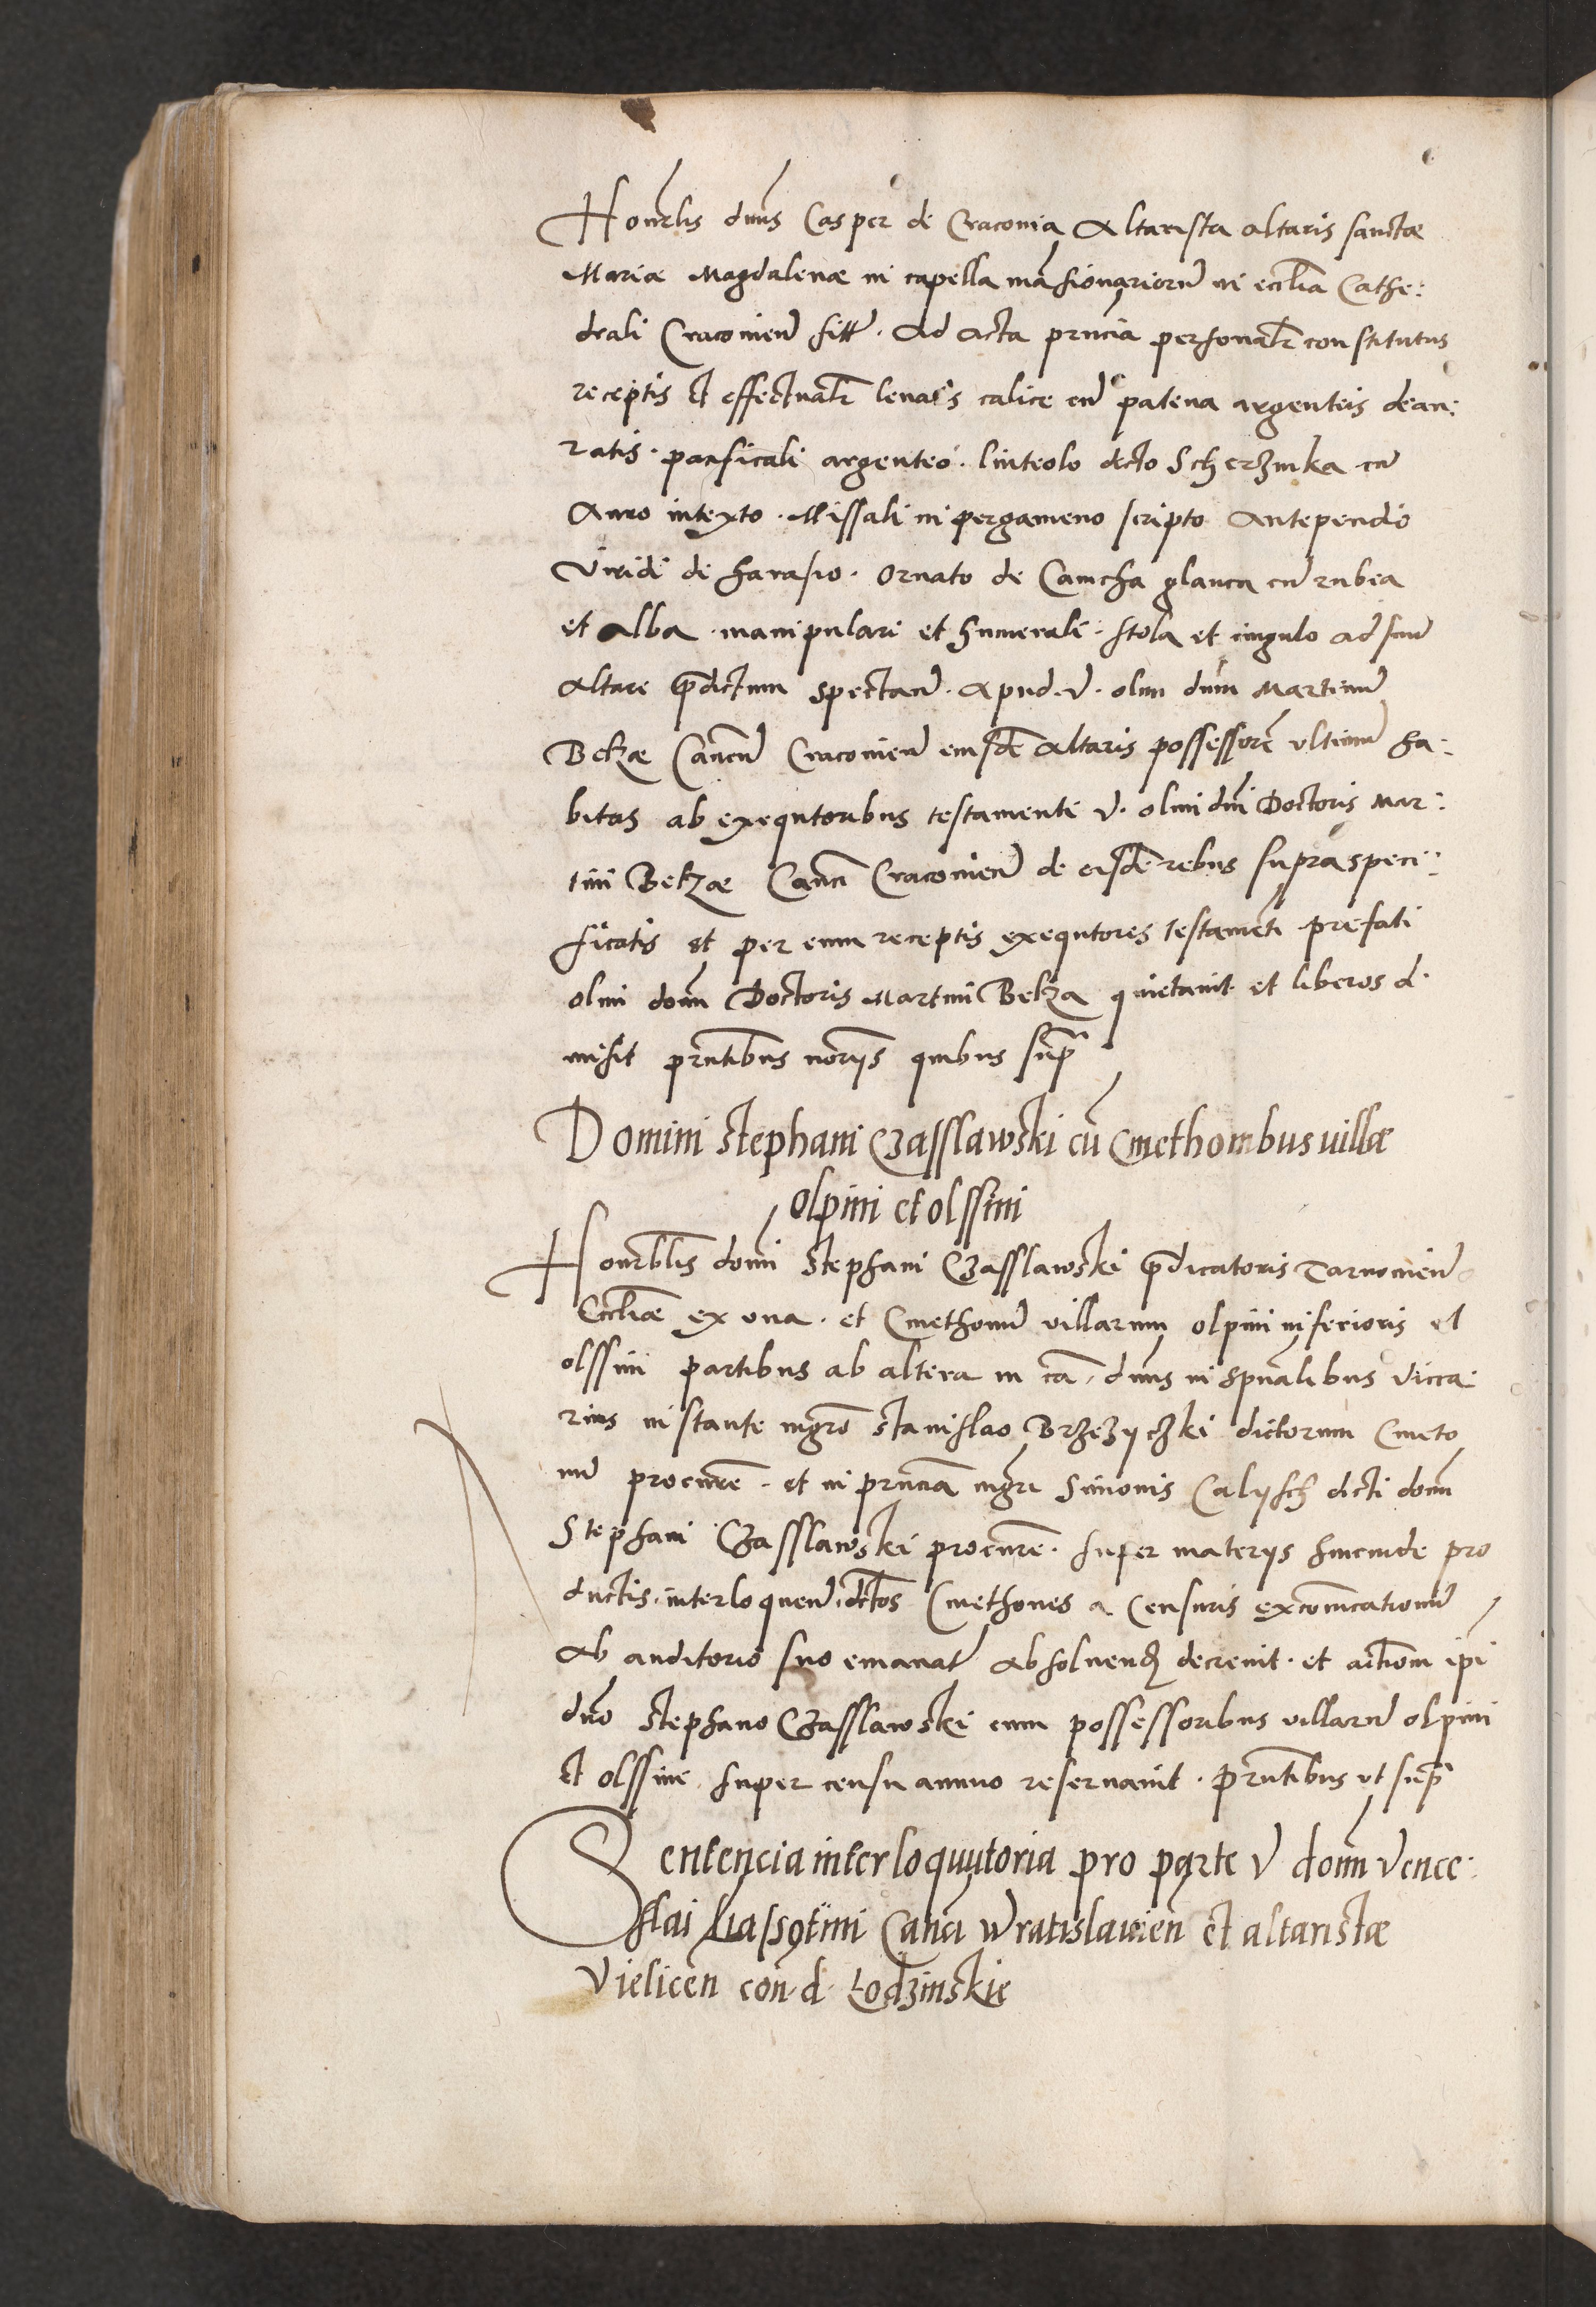 Honorlis dnus Casper de Cracovia Altarista altaris sanctæ
Mariæ Magdalenæ in capella mansionariorũ in ecclia Cathe:
drali Cracovien̄ sitt̄. Ad acta prncia personalr̄ constitutus
receptis et effectualr̄ levatis calice cũ patena argenteis deau:
ratis. pacificali argenteo. linteolo dcto Scherzinka cũ
Auro intexto. Missali in pergameno scripto Antependio
Viridi de harasio. Ornato de Camcha glauca cũ rubea
et alba. manipulari et humerali. stola et cingulo ad suũ
altare p̄dictum spectan̄. apud. v. olim dũm Martinũ
Belzæ Canon̄ Cracovien̄ eiusdē altaris possessorē ultimũ ha:
bitas ab exequtoribus testamenti v. olim dni Doctoris Mar:
tini Belzæ Canci Cracovien̄ de eisdē rebus supra speci:
ficatis et per eum receptis exequtores testamēti prefati
olim domi Doctoris Martini Belza quietavit et liberos d.
misit prntibus noriis quibus sup̄
Domini Stephani Czasslawski cũ Cmethonibus villæ
Olpini et Olssini
Honorblis domi Stephani Czasslawski p̄dicatoris Tarnovien̄
Eccliæ ex una. et Cmethonũ villarum olpini inferioris et
olssini partibus ab altera in cā. dnus in Spũalibus Vicca:
rius instante mgro Stanislao Brzezyczki dictorum Cmeto
nũ procurē. et in prnciā mgri Simonis Calysch dicti domi
Stephani Czasslawski procurē. super materiis hincinde pro
ductis. interloquen̄. dctos Cmethones a Censuris excomicationũ
Ab auditorio suo emanat̄ absolvend decrevit. et actiom ipi
dno Stephano Czasslawski cum possessoribus villarũ olpini
et olssine super censu annuo reservavit. Prntibus ut sup̄
Sentencia interloquutoria pro parte V domi Vence:
slai Liassotini Canci Wratislavien̄ et altaristæ
Vielicen̄ con. d. Łodzinskie